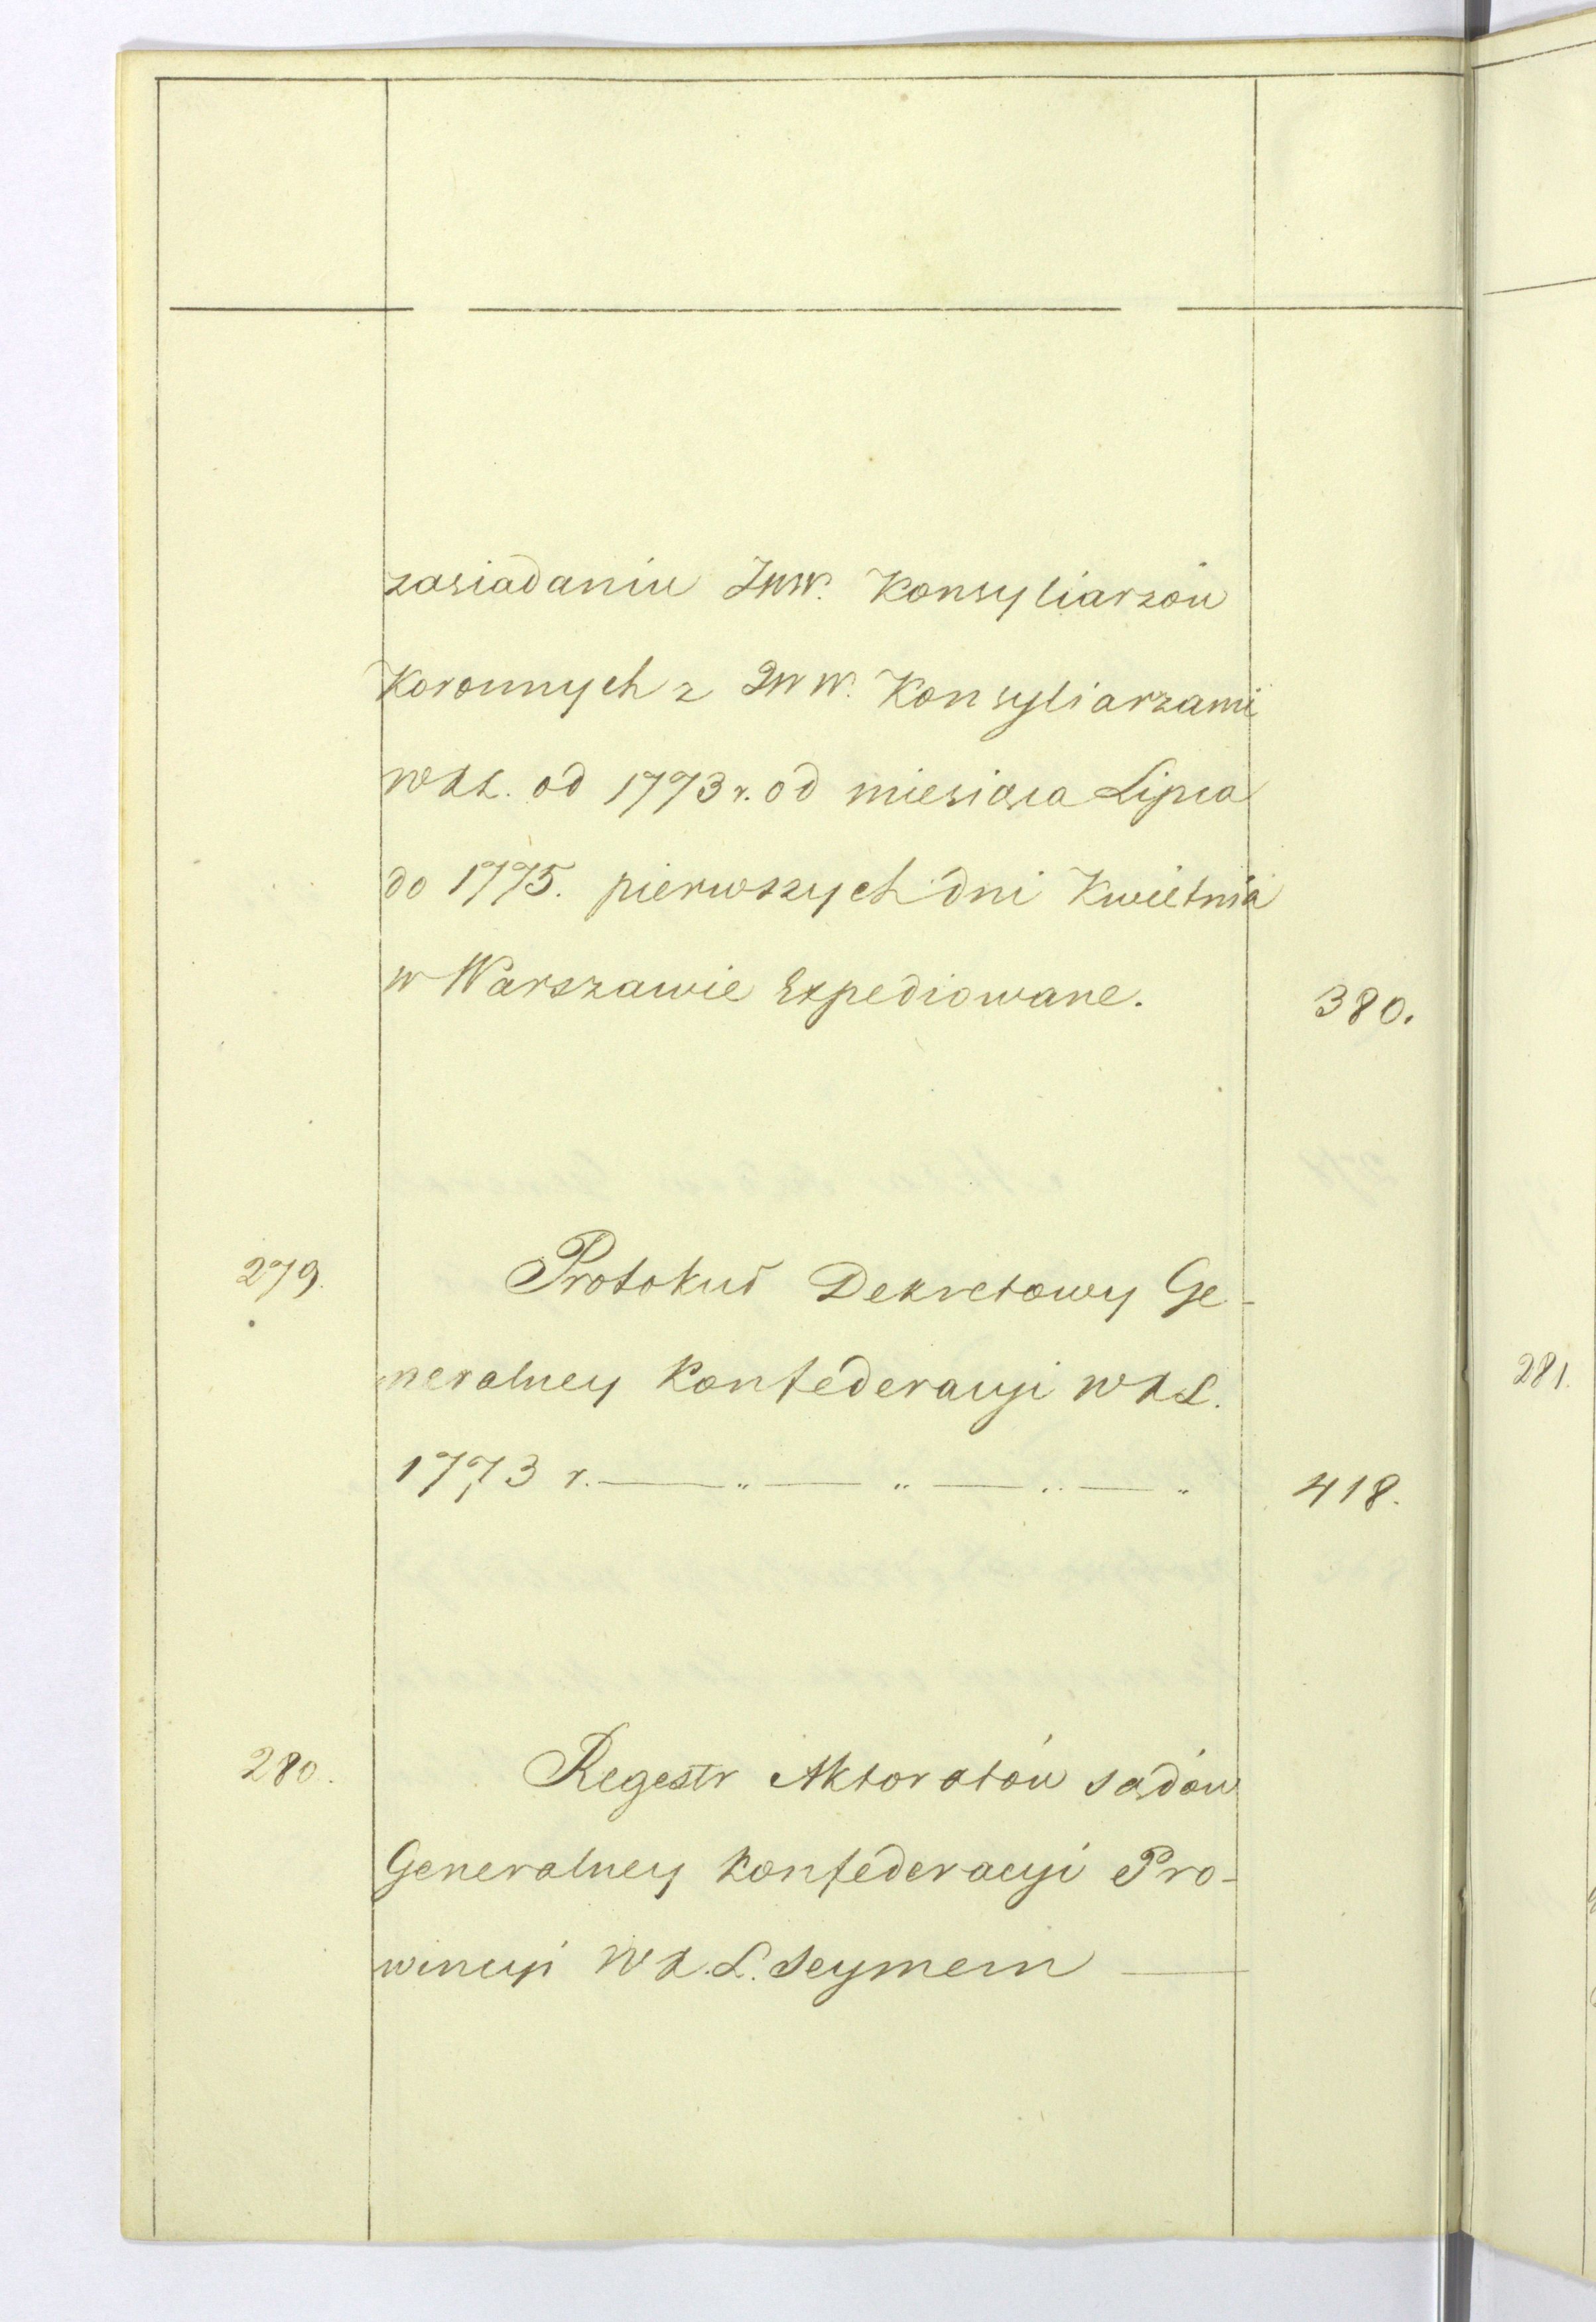 zasiadaniu JWW. Konsyliarzów
Koronnych z JWW. Konsyliarzami
WXL. od 1773 r. od miesiąca Lipca
do 1775. pierwszych dni Kwietnia
w Warszawie Expediowane. 380.
279. Protokuł Dekretowy Ge-
neralney Konfederacyi WXL.
1773 r. — „ — „ — „ — „ 418.
280. Regestr Aktoratów sądów
Generalney Konfederacyi Pro-
wincyi W.X.L. Seymem —
281.